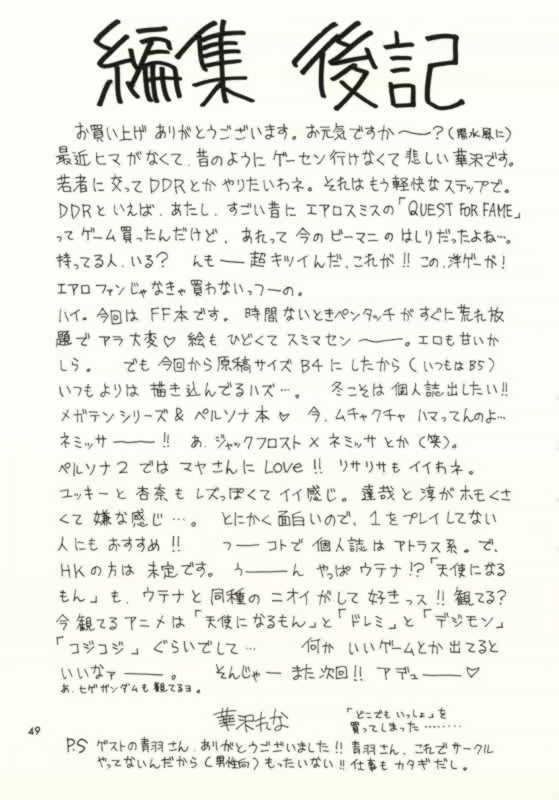 編集後記
お買い上げありがとうございます。お元気ですか〜？(陽水風に)
最近ヒマがなくて、昔のようにゲーセン行けなくて悲しい華沢です。
若者に交ってDDRとかやりたいわネ。それはもう軽快なステップで。
DDRといえば、あたし、すごい昔にエアロスミスの「QUEST FOR FAME」
ってゲーム買ったんだけど、あれって今のビーマニのはしりだったよね…。
持ってる人、いる？ んもー超キツイんだ、これが!! この、洋ゲーが!
エアロファンじゃなきゃ買わないっつーの。
ハイ。今回はFF本です。時間ないときペンタッチがすぐに荒れ放
題でアラ大変♡ 絵もひどくてスミマセン〜。エロも甘いか
しら。 でも今回から原稿サイズB4にしたから(いつもはB5)
いつもよりは描き込んでるハズ…。 冬こそは個人誌出したい!!
メガテンシリーズ&ペルソナ本♡ 今、ムチャクチャハマってんのよ…
ネミッサー!! あ、ジャックフロスト×ネミッサとか(笑)。
ペルソナ2ではマヤさんにLove!! リサリサもイイわネ。
ユッキーと杏奈もレズっぽくてイイ感じ。達哉と淳がホモくさ
くて嫌な感じ…。 とにかく面白いので、1をプレイしてない
人にもおすすめ!! つーコトで個人誌はアトラス系。で、
HKの方は未定です。うーん やっぱウテナ!?「天使になる
もん」も、ウテナと同種のニオイがして好きっス!! 観てる?
今観てるアニメは「天使になるもん」と「ドレミ」と「デジモン」
「コジコジ」ぐらいでして… 何かいいゲームとか出てると
いいなァー。 そんじゃーまた次回!! アデュー♡
あ、ヒゲガンダムも観てるヨ。
華沢れな
「どこでもいっしょ」を
買ってしまった………
49
P.S ゲストの青羽さん、ありがとうございました!! 青羽さん、これでサークル
やってないんだから(男性向)もったいない!! 仕事もカタギだし。